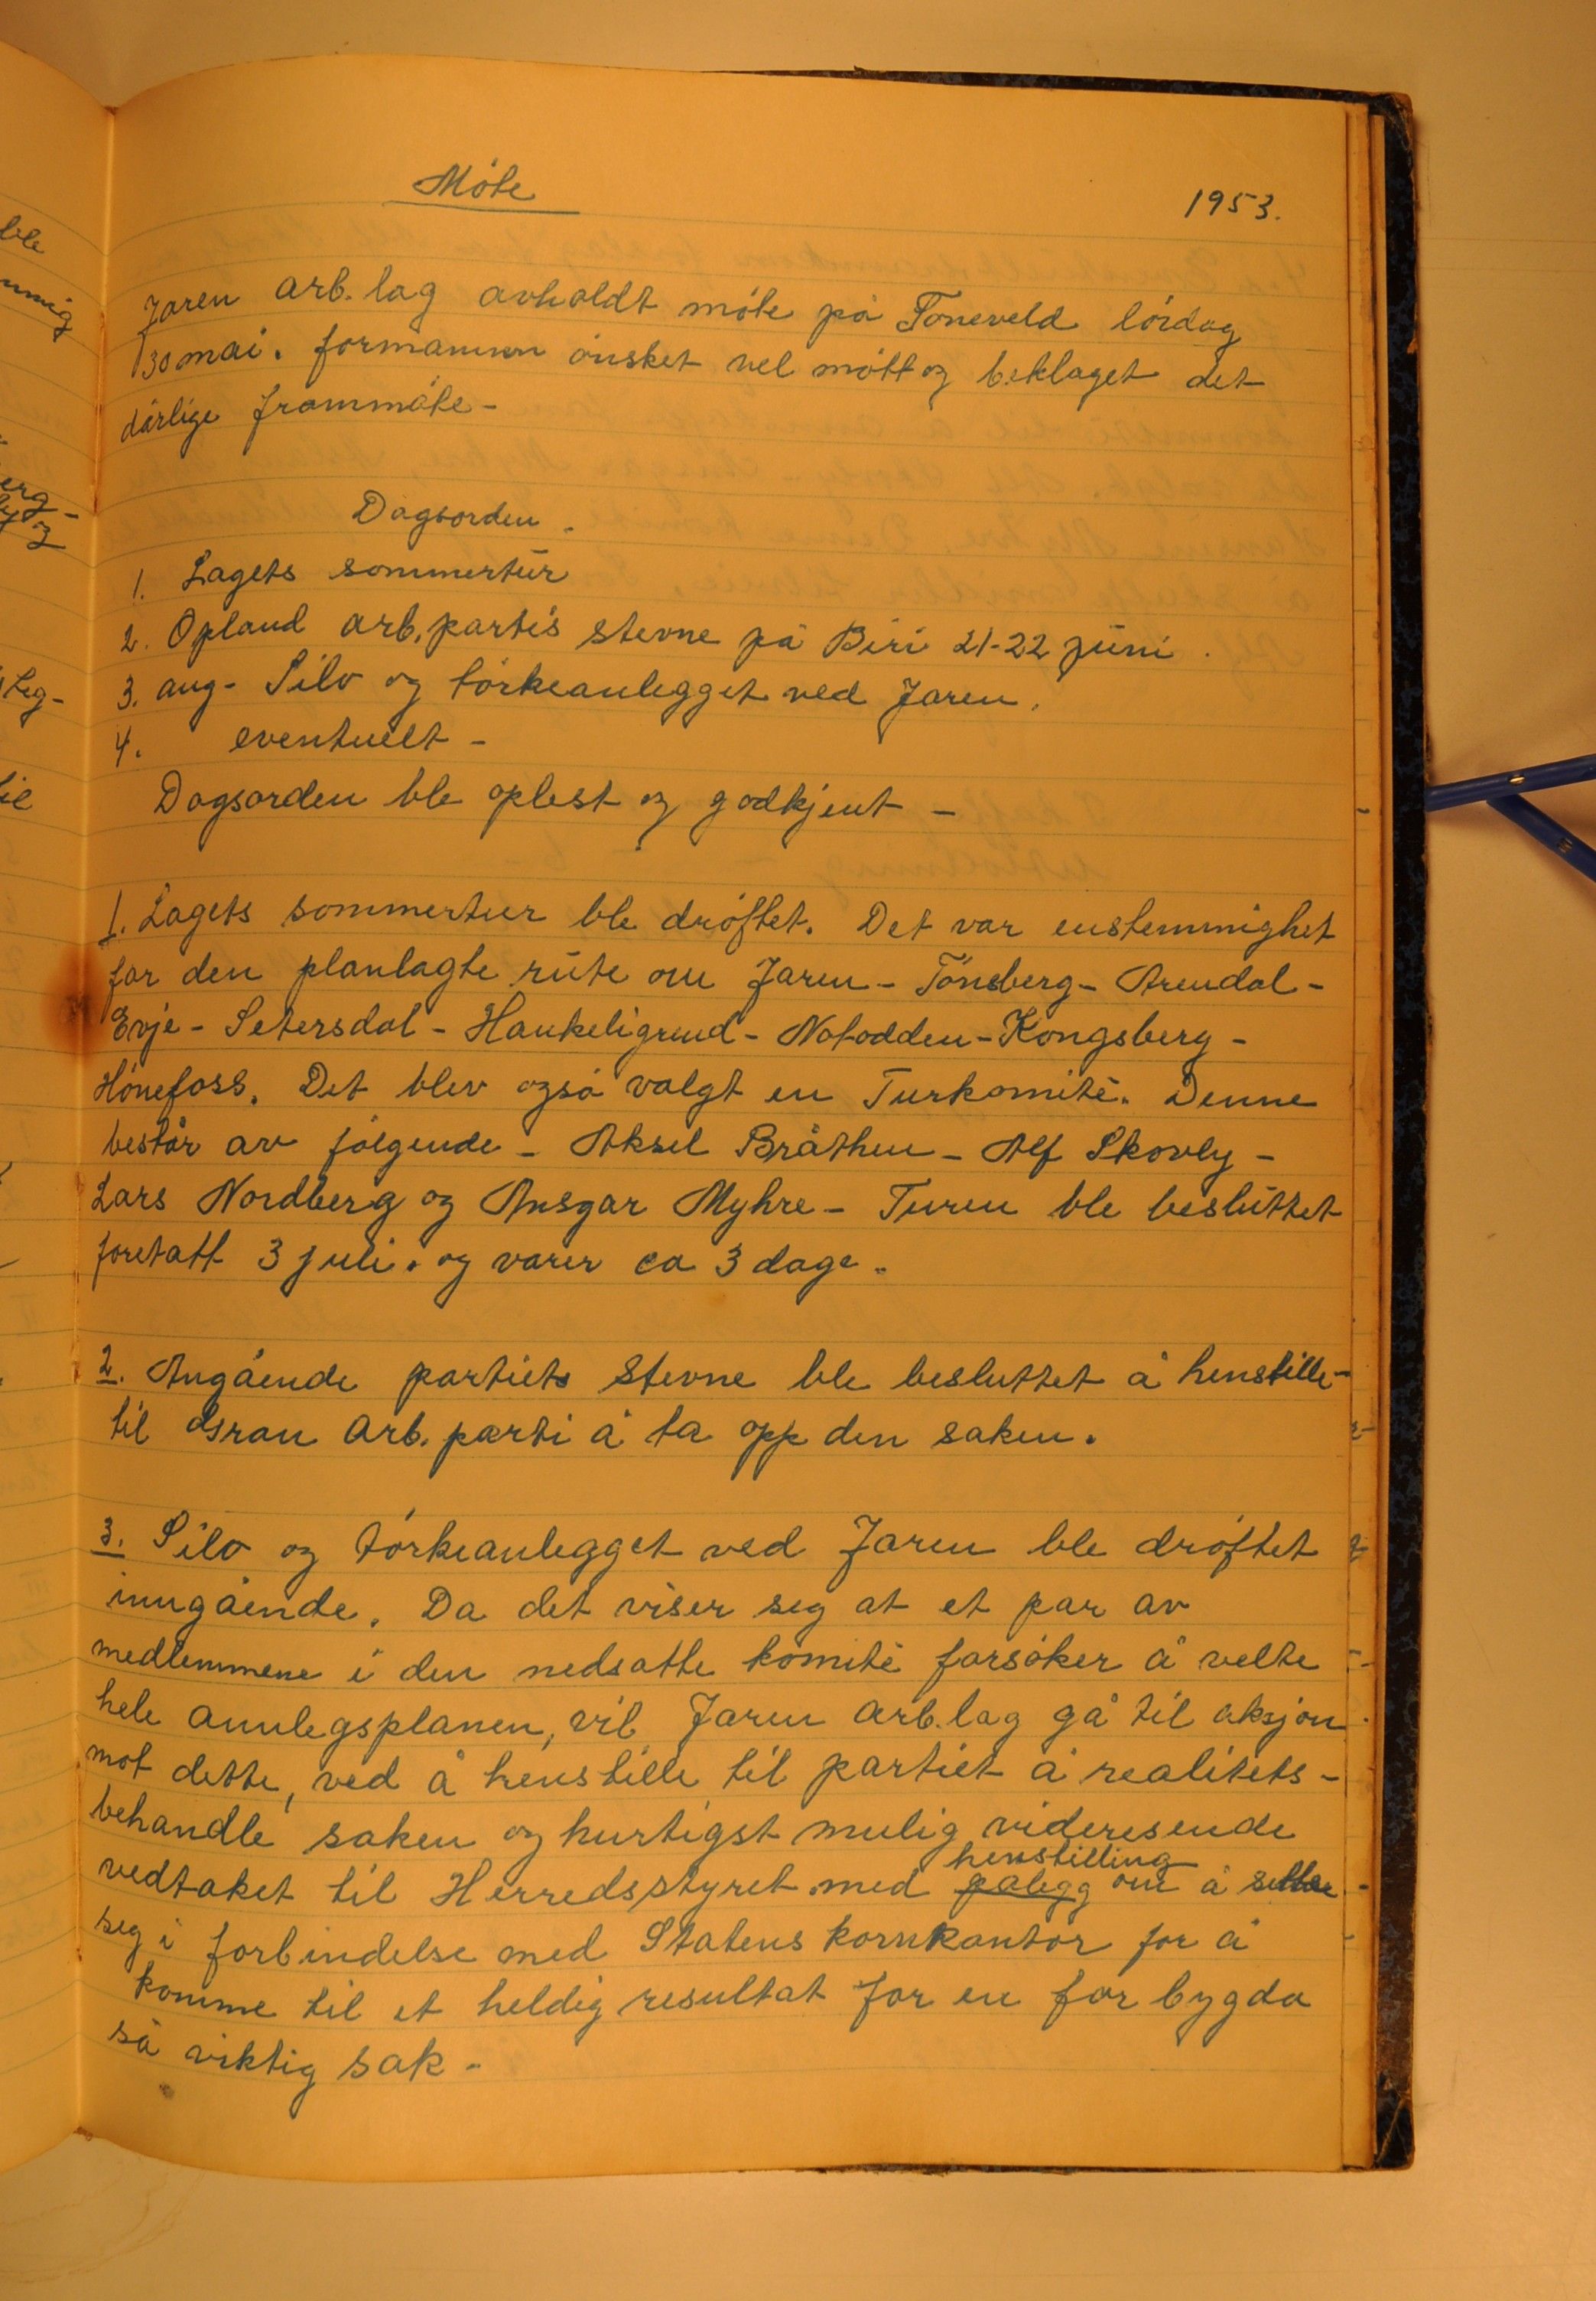 Móte
1953.
Jaren arb. lag avholdt móte på Toneveld lórdag
30 mai. formannen ónsket vel mótt og beklaget det
dårlige frammóte -
Dagsorden.
1. Lagets sommertur
2. Opland arb. partis stevne på Biri 21-22 juni.
3. ang- Silo og tórkeanlegget ved Jaren.
4. eventuelt -
Dagsorden ble oplest og godkjent -
1. Lagets sommertur ble dróftet. Det var enstemmighet
for den planlagte rute om Jaren - Tónsberg - Arendal -
Evje - Setersdal - Haukeligrend - Notodden - Kongsberg -
Hónefoss. Det blev også valgt en Turkomité. Denne
består av fólgende - Aksel Bråthen - Alf Skovly -
Lars Nordberg og Ansgar Myhre - Turen ble besluttet
foretatt 3 juli. og varer ca 3 dage.
2. Angående partiets stevne ble besluttet å henstille-
til Gran Arb. parti å ta opp den saken.
3. Silo og tórkeanlegget ved Jaren ble dróftet
inngående. Da det viser seg at et par av
medlemmene i den nedsatte komité forsóker å velte
hele annlegsplanen, vil Jaren arb. lag gå til aksjon
mot dette, ved å henstille til partiet å realitets-
behandle saken og hurtigst mulig videresende
henstilling
vedtaket til Herredsstyret med pålegg om å sette
seg i forbindelse med Statens kornkontor for å
komme til et heldig resultat for en for bygda
så viktig sak -